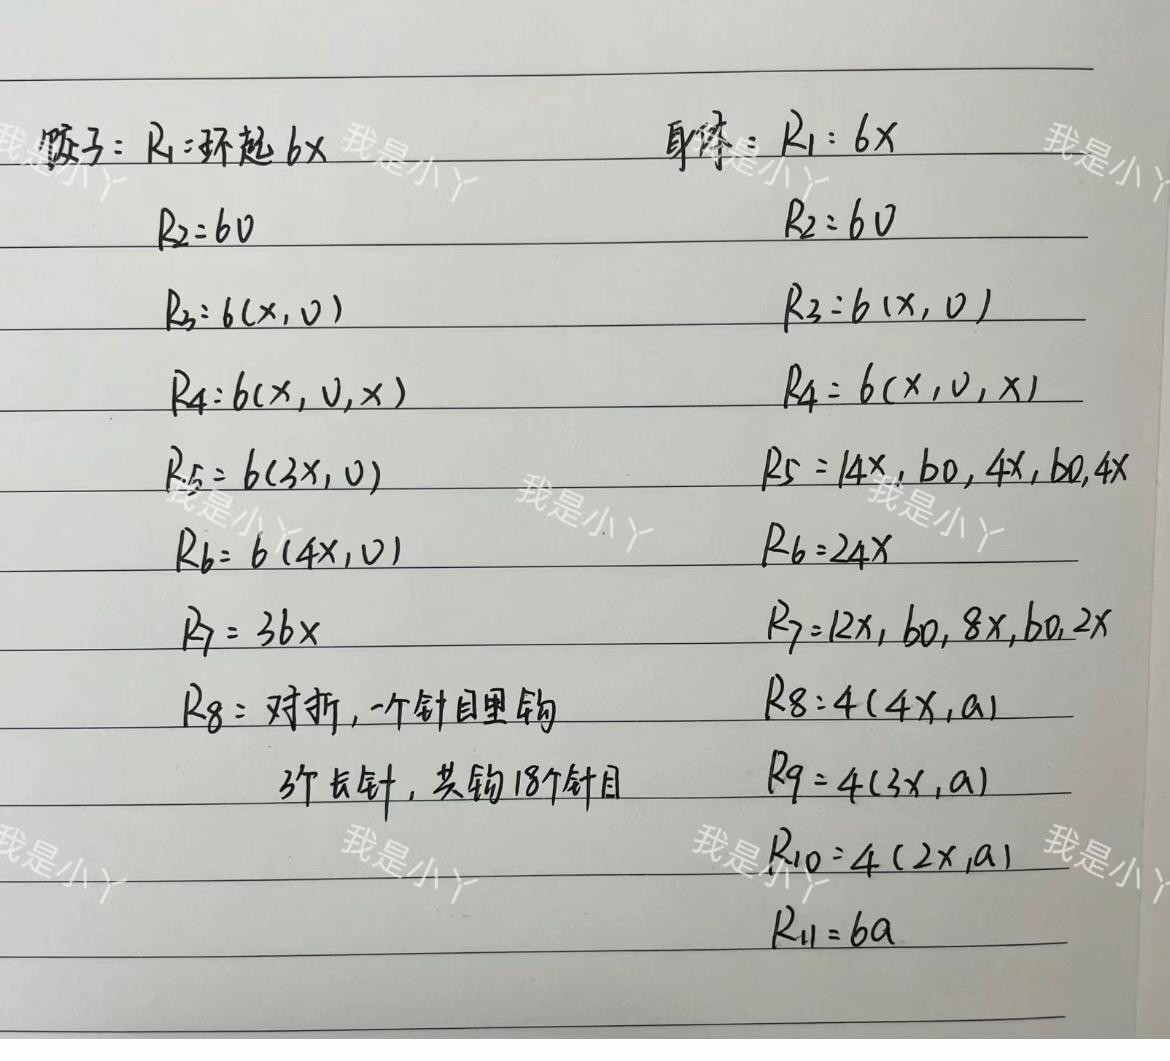 饺子：R1：环起6x
R2=6v
R3：6(x,v)
R4：6(x,v,x)
R5=6(3x,v)
R6=6(4x,v)
R7=36x
R8=对折,一个针目里钩
3个长针,共钩18个针目
身体：R1:6x
R2=6v
R3=6(x,v)
R4=6(x,v,x)
R5=14x,bo,4x,bo,4x
R6=24x
R7=12x,bo,8x,bo,2x
R8:4(4x,a)
R9=4(3x,a)
R10=4(2x,a)
R11=6a
我是小丫
我是小丫
我是小丫
我是小丫
我是小丫
我是小丫
我是小丫
我是小丫
我是小丫
我是小丫
我是小丫